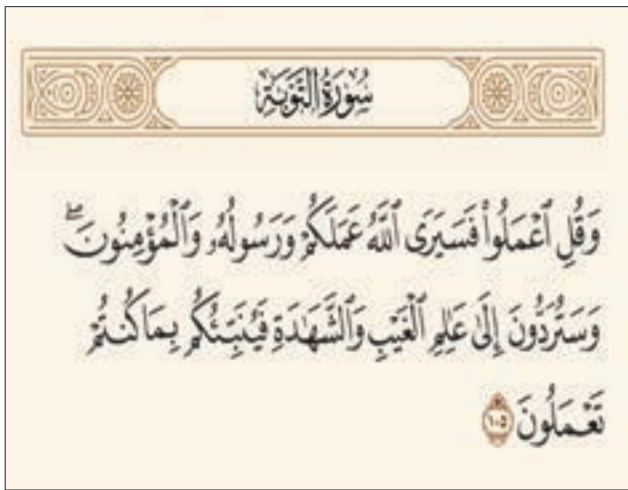 سُورَةُ التَّوْبَةِ
وَقُلِ ٱعْمَلُوا۟ فَسَيَرَى ٱللَّهُ عَمَلَكُمْ وَرَسُولُهُۥ وَٱلْمُؤْمِنُونَ ۖ
وَسَتُرَدُّونَ إِلَىٰ عَـٰلِمِ ٱلْغَيْبِ وَٱلشَّهَـٰدَةِ فَيُنَبِّئُكُم بِمَا كُنتُمْ
تَعْمَلُونَ ١٠٥